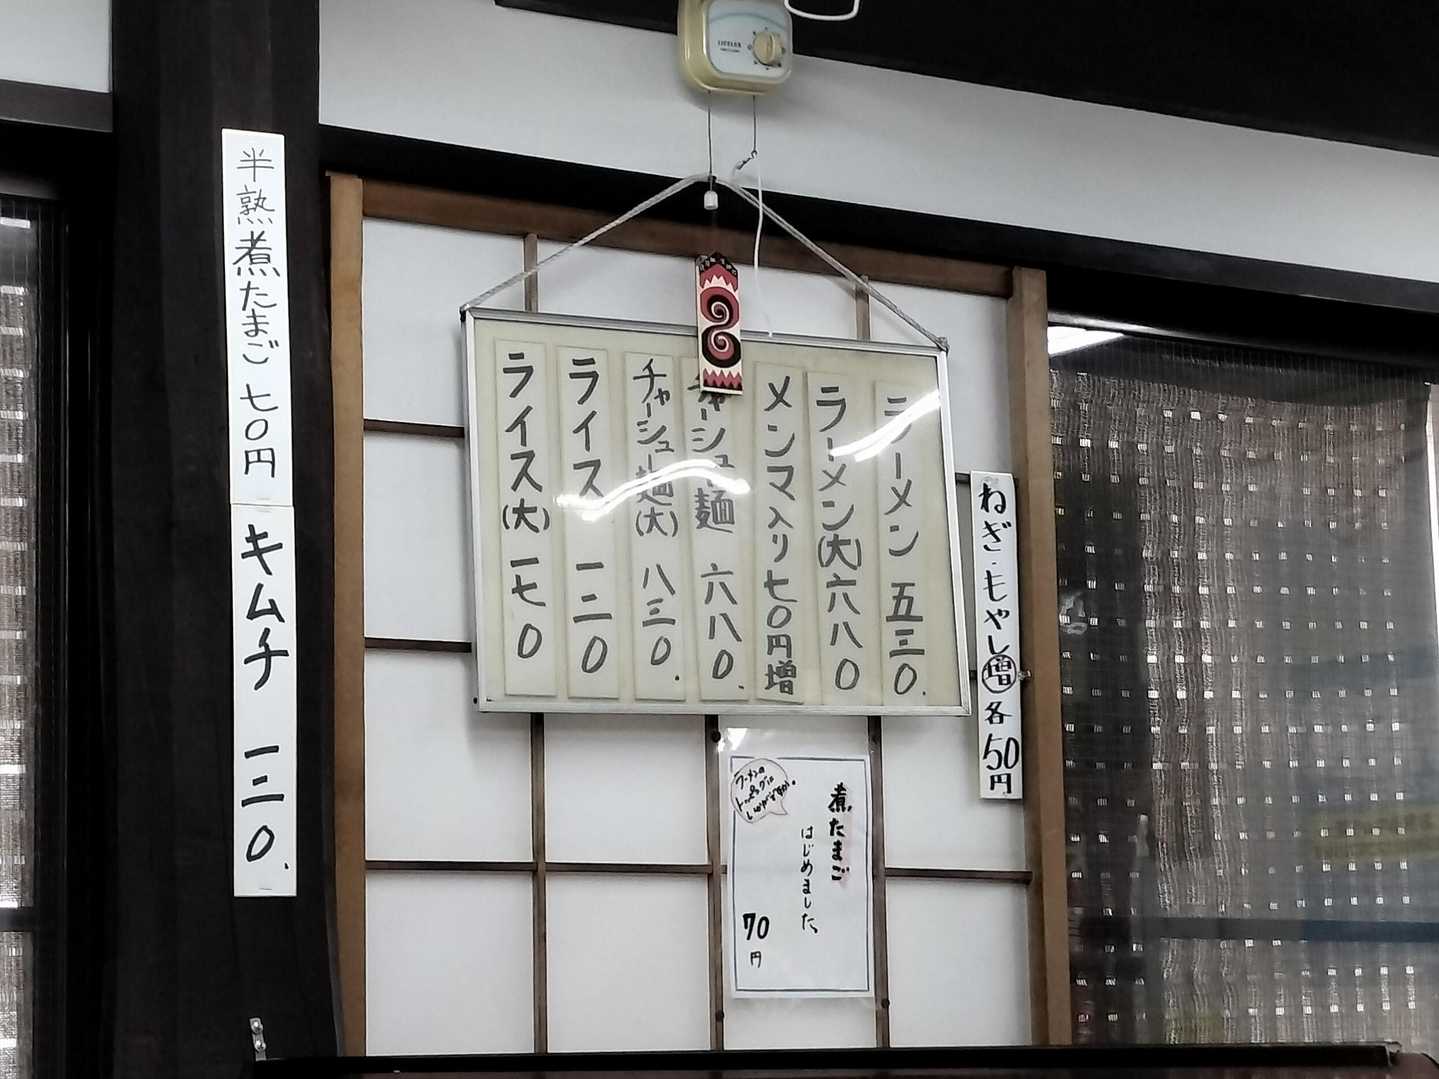 ラーメン 五三〇.
ラーメン(大) 六八〇
メンマ入り 七〇円増
チャーシュー麺 六八〇.
チャーシュー麺(大) 八三〇.
ライス 一二〇
ライス(大) 一七〇
ねぎ・もやし増各50円
半熟煮たまご 七〇円
キムチ 一三〇.
煮たまご
はじめました
70
円
ラーメンの
トッピングに
いかがですか。